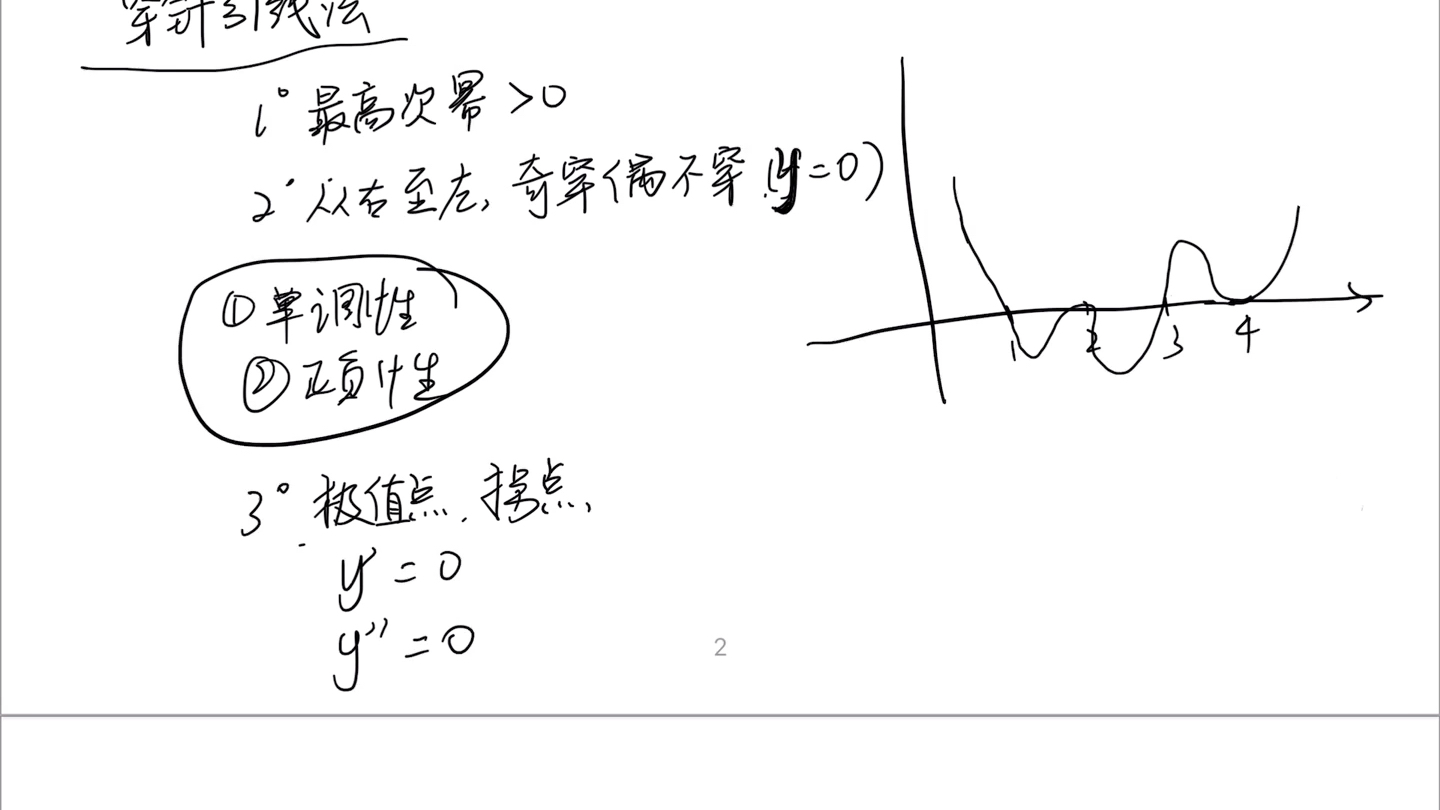 穿针引线法
1° 最高次幂 >0
2° 从右至左, 奇穿偶不穿 (y=0)
① 单调性
② 正负性
1 2 3 4
3° 极值点、拐点,
y' = 0
y'' = 0
2